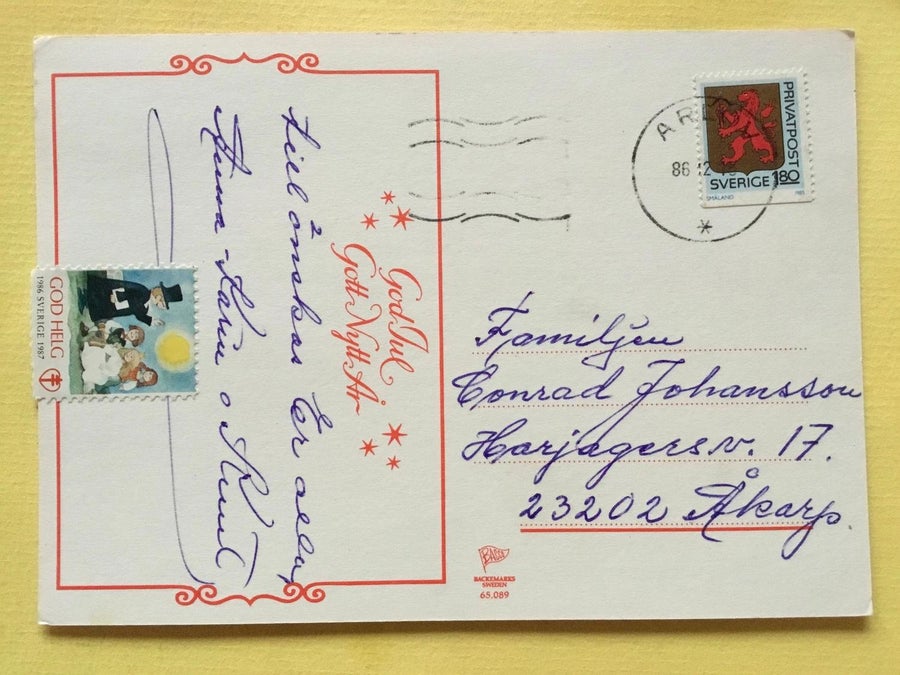 God Jul
Gott Nytt År
tillönskas Er alla
Anna-Karin o Knut
GOD HELG
1986 SVERIGE 1987
PRIVATPOST
SVERIGE 180
SMÅLAND 1985
86 12
Familjen
Conrad Johansson
Harjagersv. 17.
23202 Åkarp.
BACKEMARKS
SWEDEN
65.089